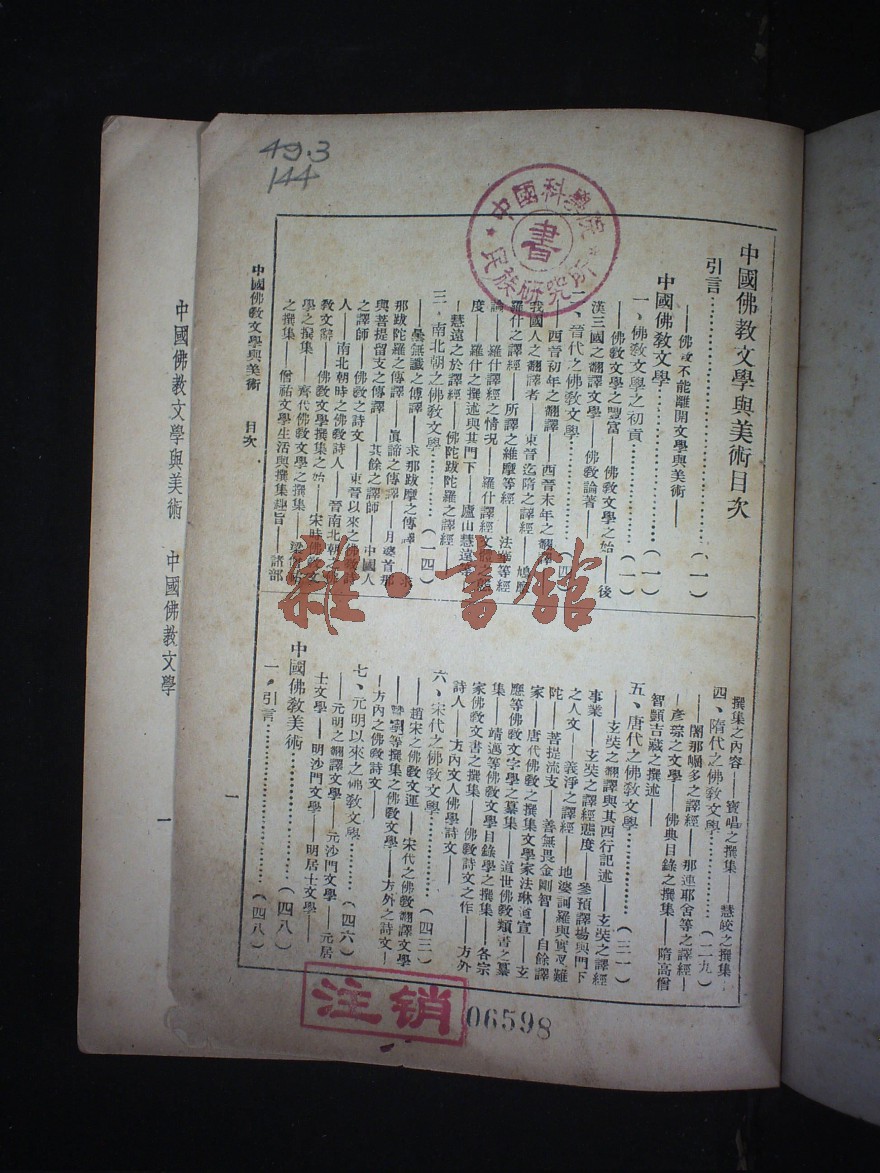 49.3
144
中國科學院
民族研究所
書
中國佛教文學與美術目次
引言…………(一)
——佛敎不能離開文學與美術——
中國佛敎文學…………(一)
一、佛敎文學之初貢…………(一)
——佛敎文學之豐富——佛敎文學之始——後
漢三國之翻譯文學——佛敎論著——
二、晉代之佛敎文學…………(四)
——西晉初年之翻譯——西晉末年之翻譯——
我國人之翻譯者——東晉迄隋之譯經——鳩摩
羅什之譯經——所譯之維摩等經——法華等經
論——羅什譯經之情況——羅什譯經文體之態
度——羅什之撰述與其門下——廬山慧遠等
——慧遠之於譯經——佛陀跋陀羅之譯經——
三、南北朝之佛敎文學…………(一四)
——曇無讖之傳譯——求那跋摩之傳譯——求
那跋陀羅之傳譯——眞諦之傳譯——月婆首那
與菩提留支之傳譯——其餘之譯師——中國人
之譯師——佛敎之詩文——東晉以來之佛敎詩
人——南北朝時之佛敎詩人——晉南北朝之佛
敎文辭——佛敎文學撰集之始——宋時佛敎文
學之撰集——齊代佛敎文學之撰集——梁僧祐
之撰集——僧祐文學生活與撰集趣旨——諸部
撰集之內容——寶唱之撰集——慧皎之撰集——
四、隋代之佛敎文學…………(二九)
——闍那崛多之譯經——那連耶舍等之譯經——
彥琮之文學——佛典目錄之撰集——隋高僧
智顗吉藏之撰述——
五、唐代之佛敎文學…………(三一)
——玄奘之翻譯與其西行記述——玄奘之譯經
事業——玄奘之譯經態度——參預譯場與門下
之人文——義淨之譯經——地婆訶羅與實叉難
陀——菩提流支——善無畏金剛智——自餘譯
家——唐代佛敎之撰集文學家法琳道宣——玄
應等佛敎文字學之纂集——道世佛敎類書之纂
集——靖邁等佛敎文學目錄學之撰集——各宗
家佛敎文書之撰集——佛敎詩文之作——方外
詩人——方內文人佛學詩文——
六、宋代之佛敎文學…………(四三)
——趙宋之佛敎文運——宋代之佛敎翻譯文學
——贊寧等撰集之佛敎文學——方外之詩文——
——方內之佛敎詩文——
七、元明以來之佛敎文學…………(四六)
——元明之翻譯文學——元沙門文學——元居
士文學——明沙門文學——明居士文學——
中國佛敎美術…………(四八)
一、引言…………(四八)
中國佛敎文學與美術 目次
一
中國佛教文學與美術 中國佛教文學
一
雜·書館
注销
06598